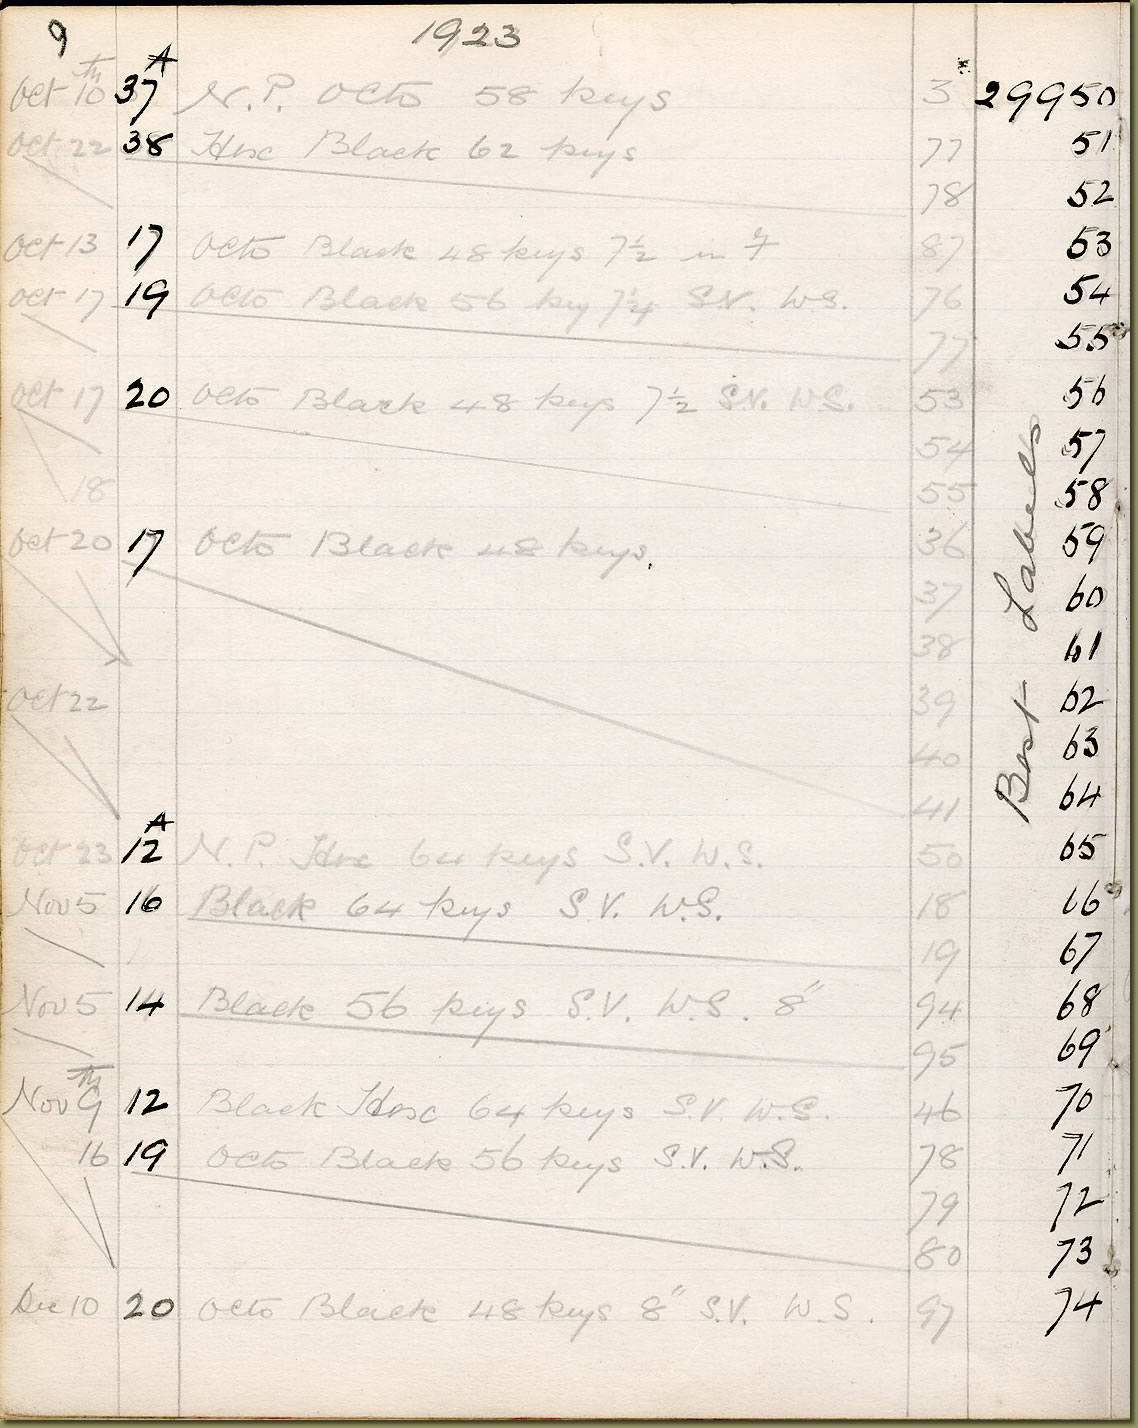 9 1923
Oct 10th 37A N.P. Octo 58 keys 3 29950
Oct 22 38 Hex Black 62 keys 77 51
78 52
Oct 13 17 Octo Black 48 keys 7½ in 87 53
Oct 17 19 Octo Black 56 key 7¼ S.V. W.S. 76 54
77 55
Oct 17 20 Octo Black 48 keys 7½ S.V. W.S. 53 56
54 57
18 55 58
Oct 20 17 Octo Black 48 keys. 36 59
37 60
38 61
Oct 22 39 62
40 63
41 64
Oct 23 12A N.P. Hex 64 keys S.V. W.S. 50 65
Nov 5 16 Black 64 keys S.V. W.S. 18 66
19 67
Nov 5 14 Black 56 keys S.V. W.S. 8" 94 68
95 69
Nov 9th 12 Black Hex 64 keys S.V. W.S. 46 70
16 19 Octo Black 56 keys S.V. W.S. 78 71
79 72
80 73
Dec 10 20 Octo Black 48 keys 8" S.V. W.S. 97 74
Best Labels